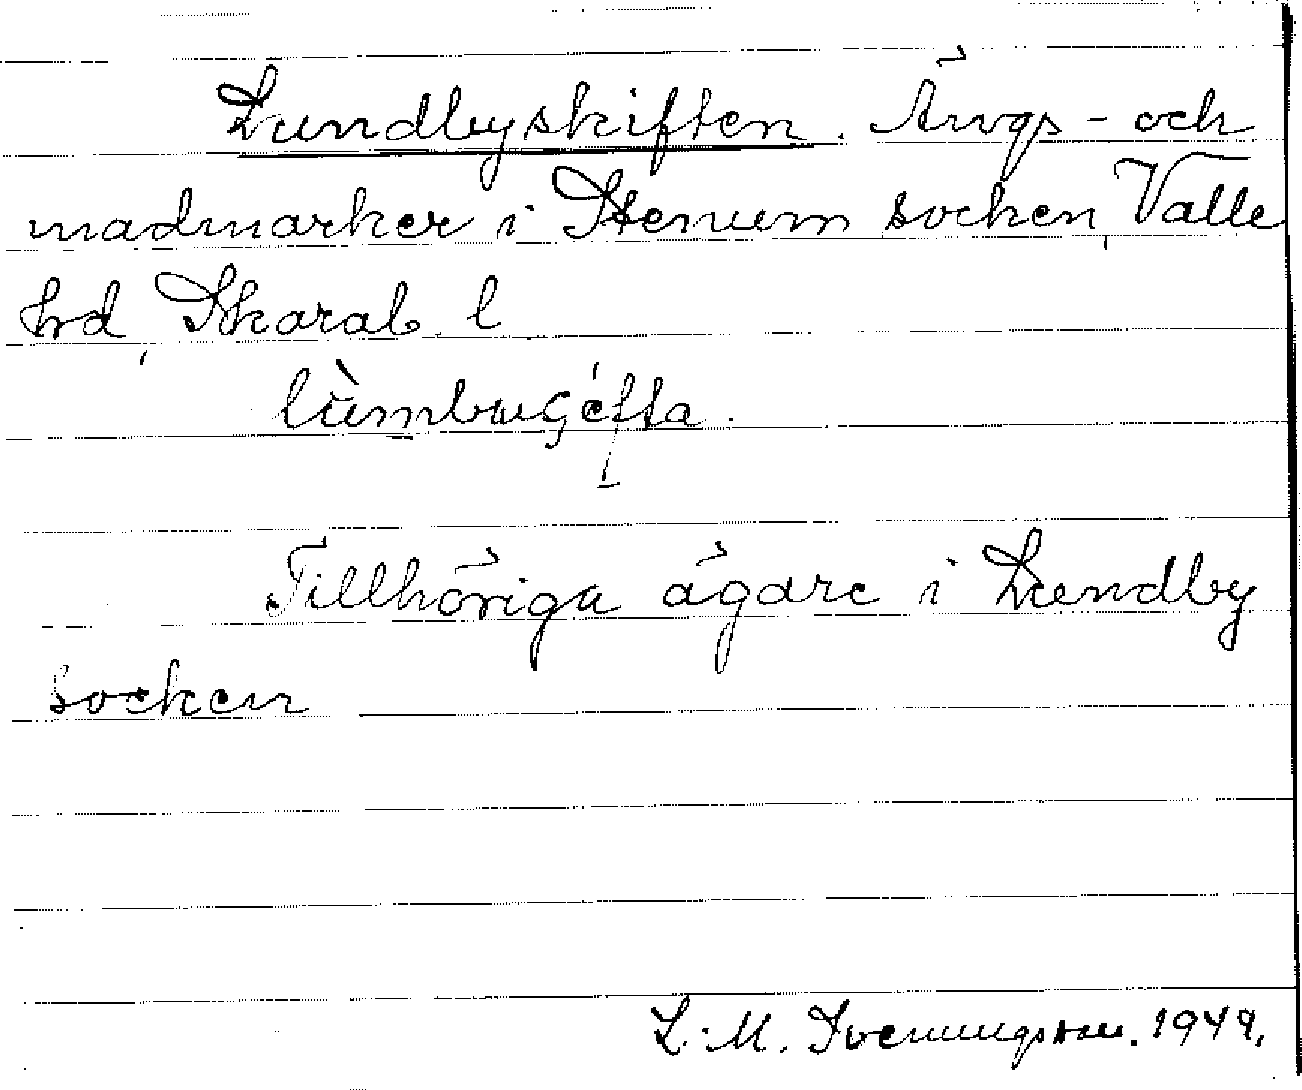 Lundbyskiften. Ängs- och
madmarker i Stenum socken, Valle
hd, Skarab. l
Tillhöriga ägare i Lundby
socken
L. M. Svenungsson. 1949.